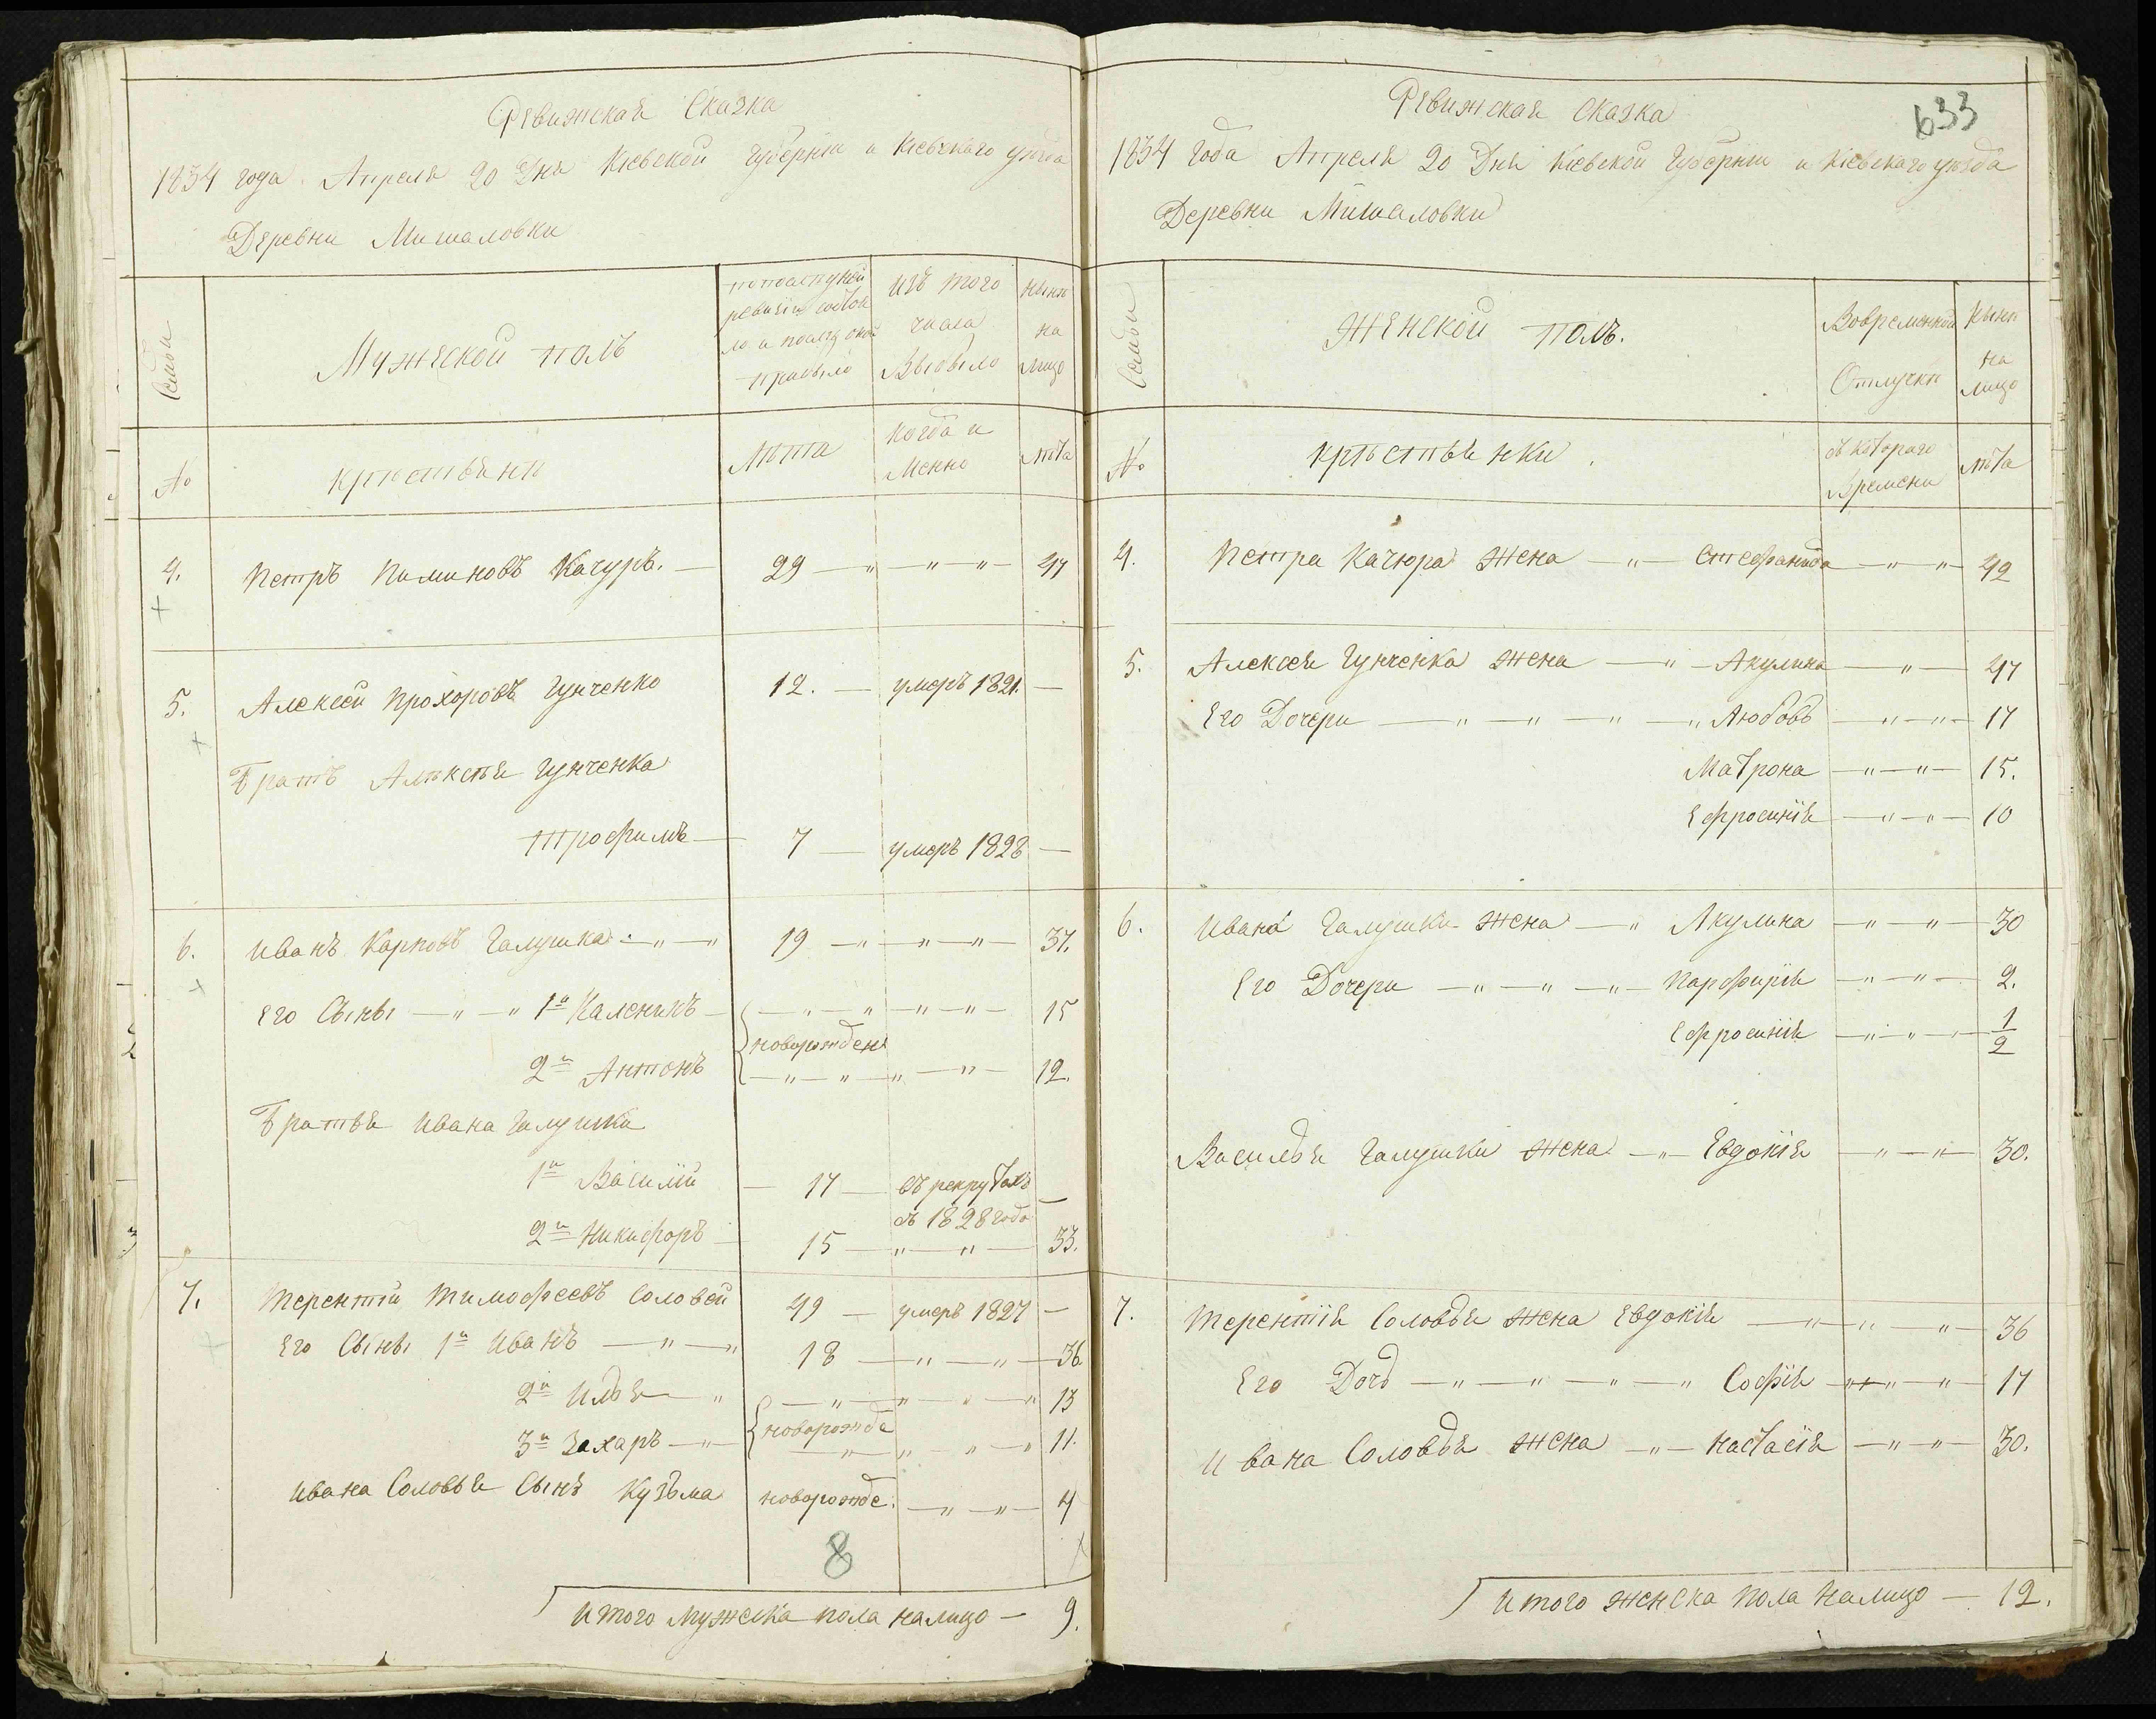 Ревижская Сказка
1834 года Апреля 20 Дня Кіевской Губерніи и Кіевскаго уѣзда
Деревни Мишаловки
Семьи
Мужеской полъ
попоследней
ревизіи состоя
ло и после оной
прибыло
Изъ того
числа
Выбыло
нынѣ
на
лицо
№
крестьянѣ
Лѣта
Когда и
Менно
лѣта
4.
Петръ Пиминовъ Качуръ. — 29 — " — " — " — 47
5.
Алексей Прохоровъ Гунченко 12. — умеръ 1821. —
Братъ Алѣксѣя Гунченка
Трофимъ — 7 — умеръ 1828 —
6.
Иванъ Карповъ Галушка — " — " 19 — " — " — " — 37.
Его Сыны — " — " 1й Каленикъ — " — " — " — " — 15
новорожден
2й Антонъ — " — " — " — " — 12.
Братья Ивана Галушки
1й Василій — 17 — въ рекрутахъ —
съ 1828 года
2й Никифоръ — 15 — " — " — 33.
7.
Терентій Тимофеевъ Соловей 49 — умеръ 1827 —
Его Сыны 1й Иванъ — " — " 18 — " — " — 36
2й Илья — " — " — " — " — " 13
новорожде
3й Захаръ — " — " — " — " — " 11.
Ивана Соловья Сынъ Кузьма новорожде. — " — " — 4
8
Итого Мужеска пола налицо — 9.
633
Ревижская Сказка
1834 Года Апреля 20 Дня Кіевской Губерніи и Кіевскаго уѣзда
Деревни Мишаловки
Семьи
Женской полъ.
Вовременной
Отлучкѣ
Нынѣ
на
лицо
№
крѣстьянки.
съ котораго
Времени
лѣта
4.
Петра Качюра жена — " — Стефанида — " — " — 42
5.
Алексея Гунченка жена — " — Акулина — " — 47
Его Дочери — " — " — " — " Любовь — " — " — 17
Матрона — " — " — 15.
Ефросинія — " — " — 10
6.
Ивана Галушки жена — " Акулина — " — " — 30
Его Дочери — " — " — " — Парфирія — " — " — 2.
Ефросинія — " — " — 1/2
Василья Галушки жена — " — Евдокія — " — " — 30.
7.
Терентія Соловья жена Евдокія — " — " — " — 36
Его Дочь — " — " — " — " Софія — " — " — " — 17
Ивана Соловья жена — " — Настасія — " — " — 30.
Итого женска пола налицо — 12.